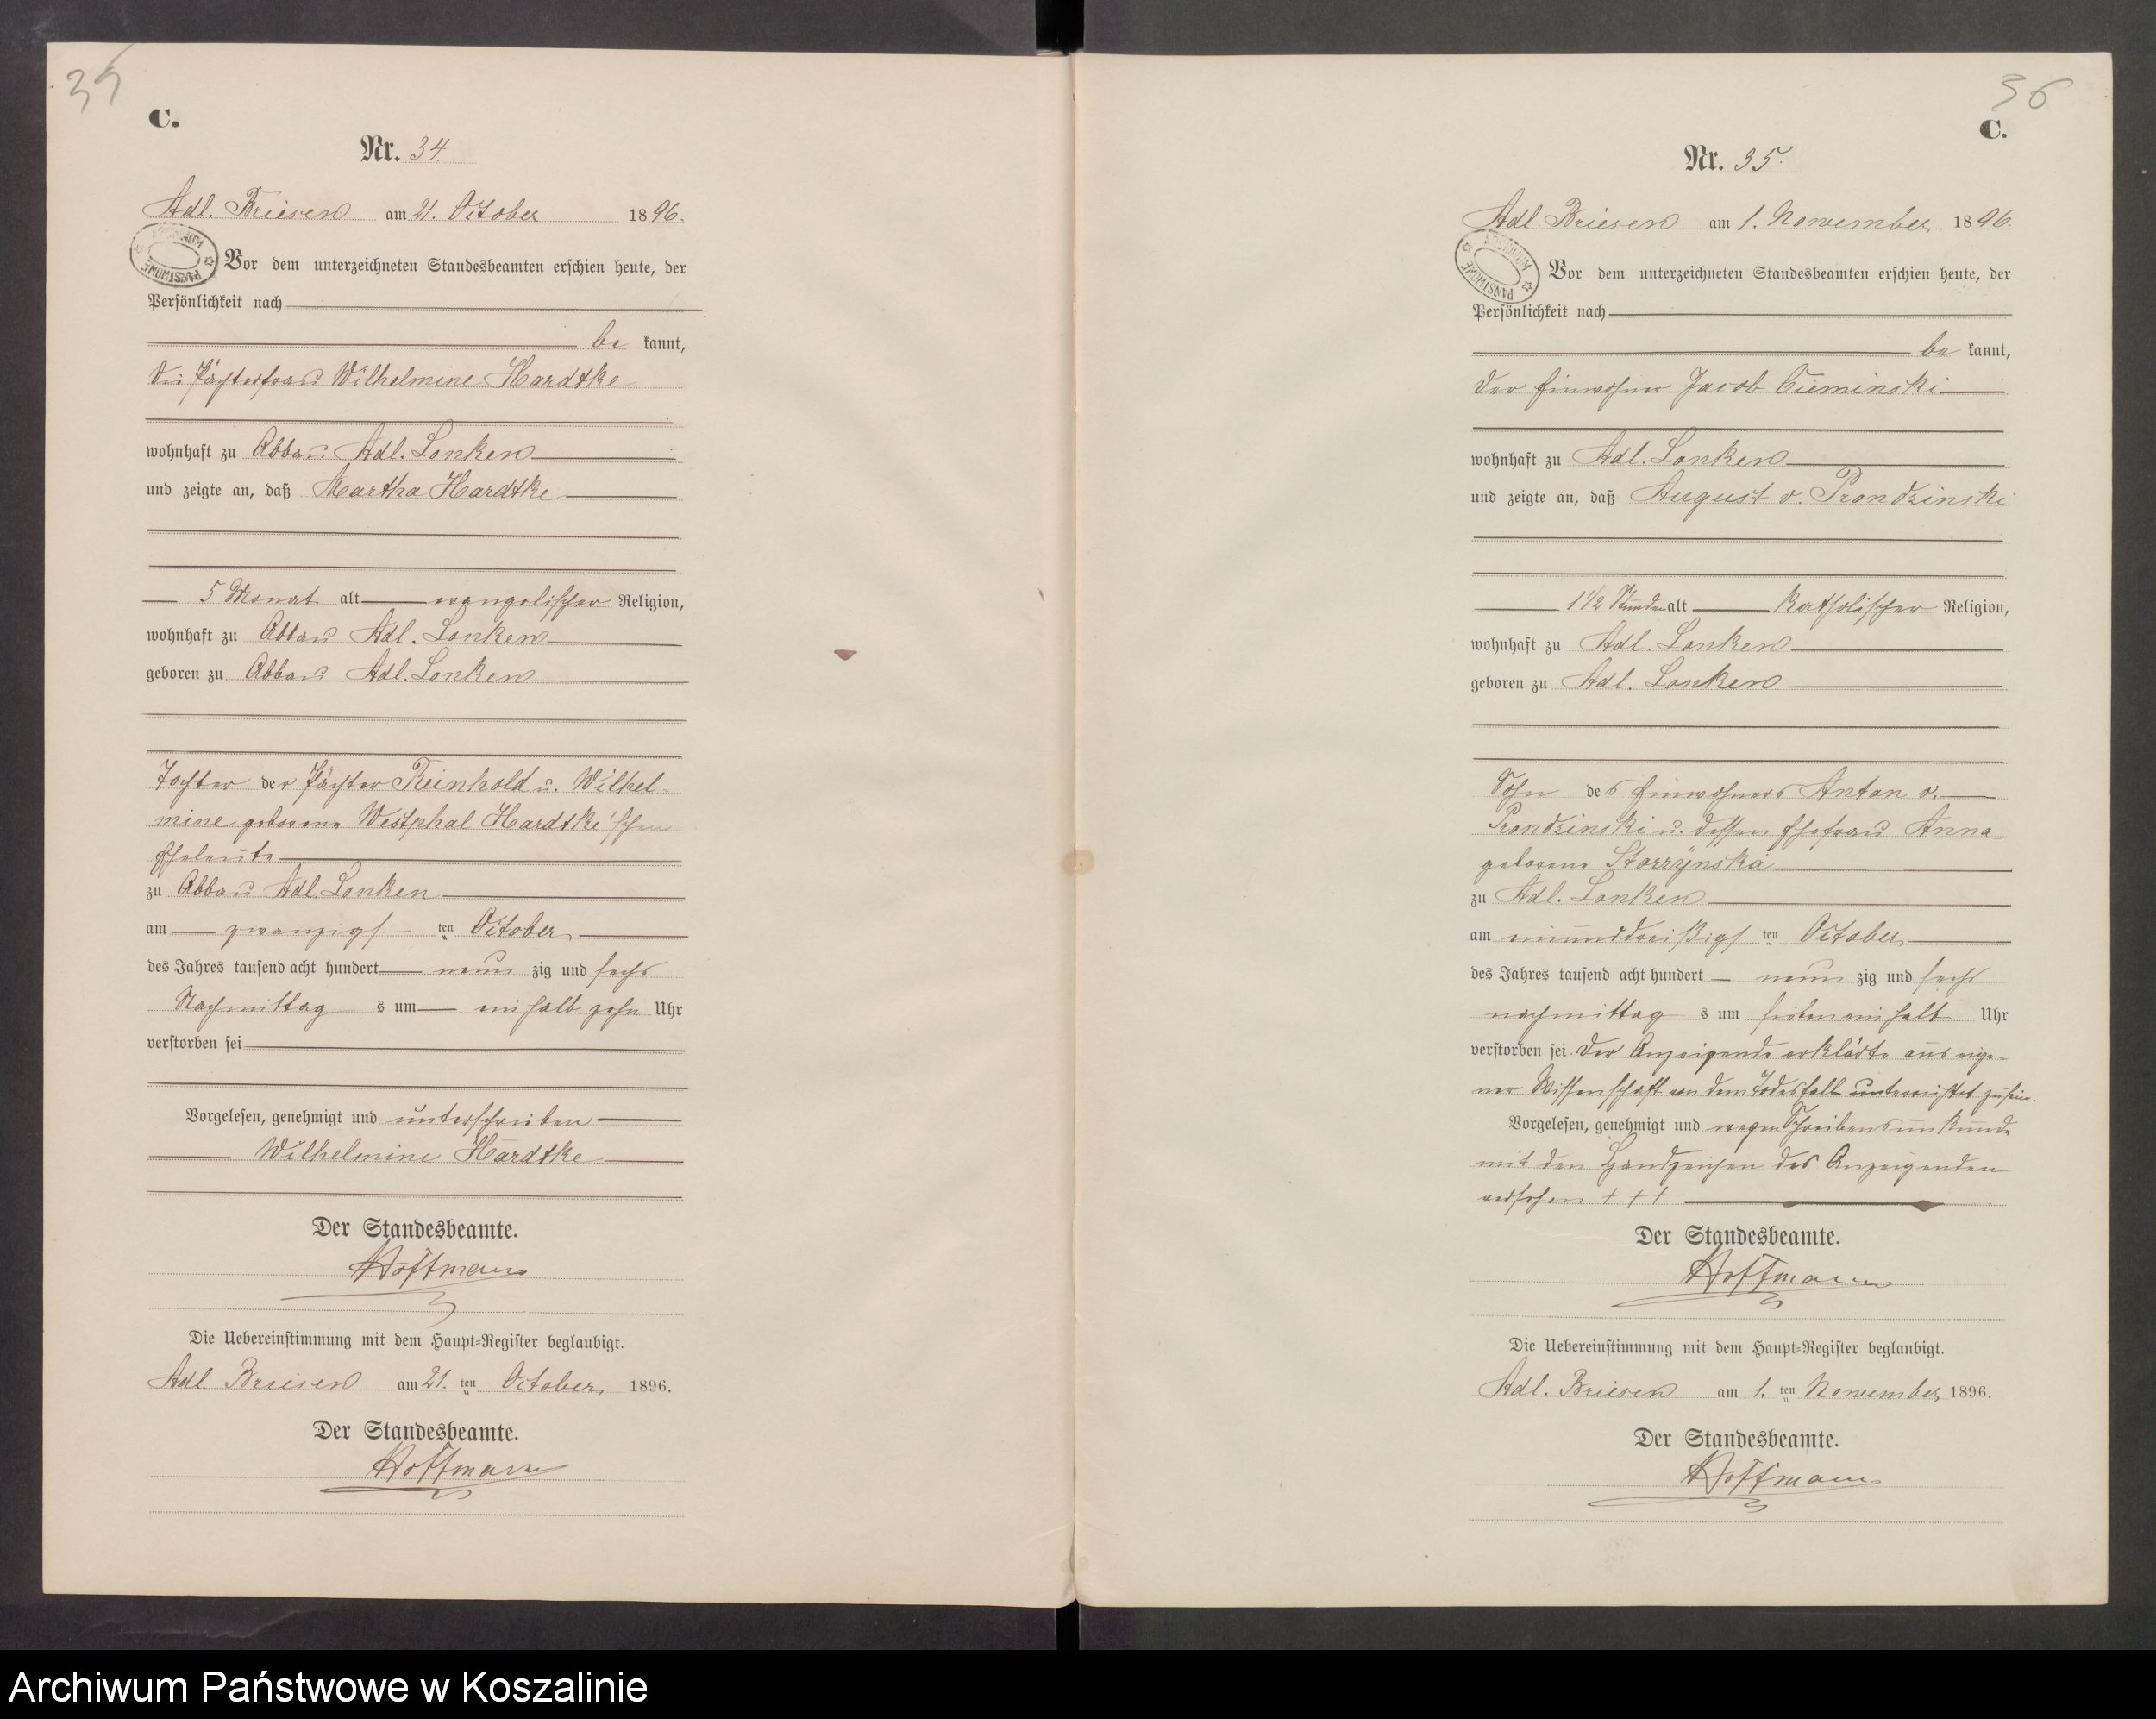 35
C.
Nr. 34.
Adl. Briesen am 21. October 1896.
ARCHIWUM PAŃSTWOWE
Vor dem unterzeichneten Standesbeamten erschien heute, der
Persönlichkeit nach
be kannt,
die Pächterfrau Wilhelmine Hardtke
wohnhaft zu Abbau Adl. Lonken
und zeigte an, daß Martha Hardtke
5 Monat alt evangelischer Religion,
wohnhaft zu Abbau Adl. Lonken
geboren zu Abbau Adl. Lonken
Tochter der Pächter Reinhold u. Wilhel-
mine geborene Westphal Hardtke'schen
Eheleute
zu Abbau Adl. Lonken
am zwanzigs ten October
des Jahres tausend acht hundert neun zig und sechs
Nachmittag s um einhalb zehn Uhr
verstorben sei
Vorgelesen, genehmigt und unterschrieben
Wilhelmine Hardtke
Der Standesbeamte.
Hoffmann
Die Uebereinstimmung mit dem Haupt-Register beglaubigt.
Adl. Briesen am 21. ten October 1896.
Der Standesbeamte.
Hoffmann
36
C.
Nr. 35.
Adl. Briesen am 1. November 1896.
ARCHIWUM PAŃSTWOWE
Vor dem unterzeichneten Standesbeamten erschien heute, der
Persönlichkeit nach
be kannt,
der Einwohner Jacob Cieminski
wohnhaft zu Adl. Lonken
und zeigte an, daß August v. Prondzinski
1 1/2 Stunden alt katholischer Religion,
wohnhaft zu Adl. Lonken
geboren zu Adl. Lonken
Sohn des Einwohners Anton v.
Prondzinski u. dessen Ehefrau Anna
geborene Storzÿnska
zu Adl. Lonken
am einunddreißigs ten October
des Jahres tausend acht hundert neun zig und sechs
nachmittag s um sieben einhalb Uhr
verstorben sei. Der Anzeigende erklärte aus eige-
ner Wissenschaft von dem Todesfall unterrichtet zu sein.
Vorgelesen, genehmigt und wegen Schreibensunkunde
mit den Handzeichen des Anzeigenden
versehen + + +
Der Standesbeamte.
Hoffmann
Die Uebereinstimmung mit dem Haupt-Register beglaubigt.
Adl. Briesen am 1. ten November 1896.
Der Standesbeamte.
Hoffmann
Archiwum Państwowe w Koszalinie